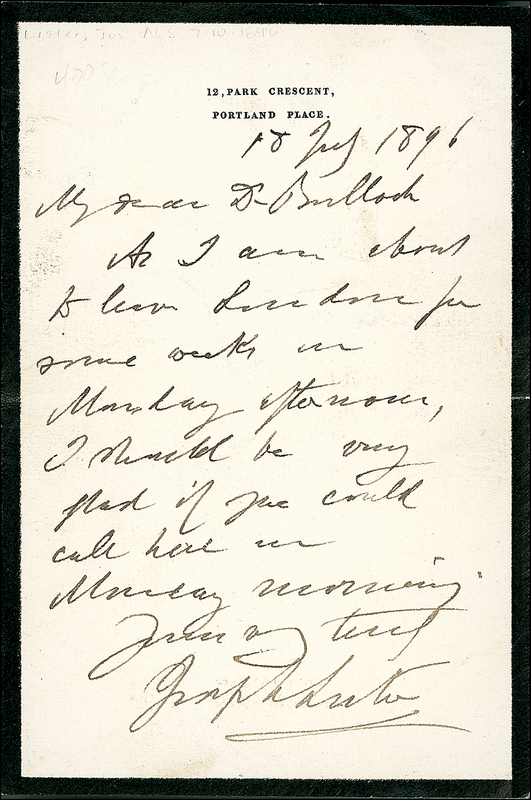 Lister, Jos ALS 7-10-1896
400
12, PARK CRESCENT,
PORTLAND PLACE.
18 July 1896
My dear Dr Bulloch
As I am about
to leave London for
some weeks on
Monday afternoon,
I should be very
glad if you could
call here on
Monday morning.
Yours very truly
Joseph Lister